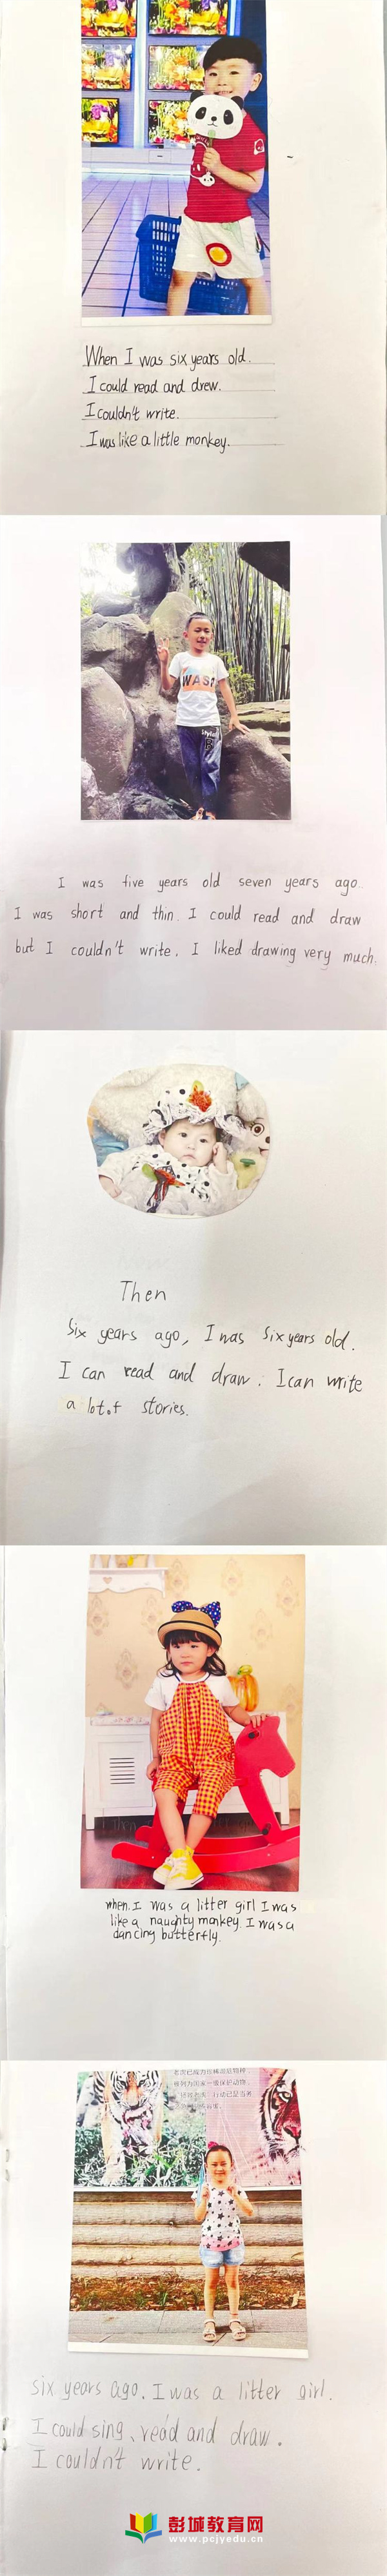 When I was six years old.
I could read and drew.
I couldn't write.
I was like a little monkey.
WAS?
I was five years old seven years ago.
I was short and thin. I could read and draw
but I couldn't write. I liked drawing very much.
Then
Six years ago, I was six years old.
I can read and draw. I can write
a lot of stories.
when. I was a litter girl I was
like a naughty monkey. I was a
dancing butterfly.
six years ago. I was a litter girl.
I could sing、read and draw.
I couldn't write.
彭城教育网
www.pcjyedu.cn